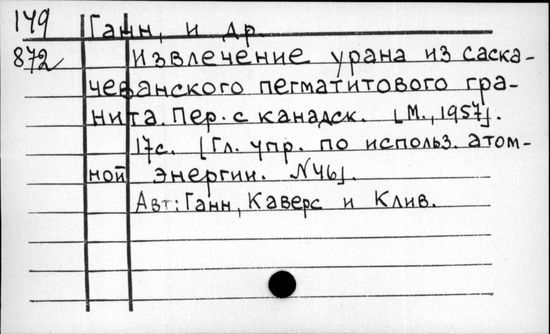 149 Ганн, и др.
872 Извлечение урана из саска-
чеванского пегматитового гра-
нита. Пер. с канадск. [М., 1957].
17с. [Гл. упр. по использ. атом-
ной энергии. N46].
Авт: Ганн, Каверс и Клив.